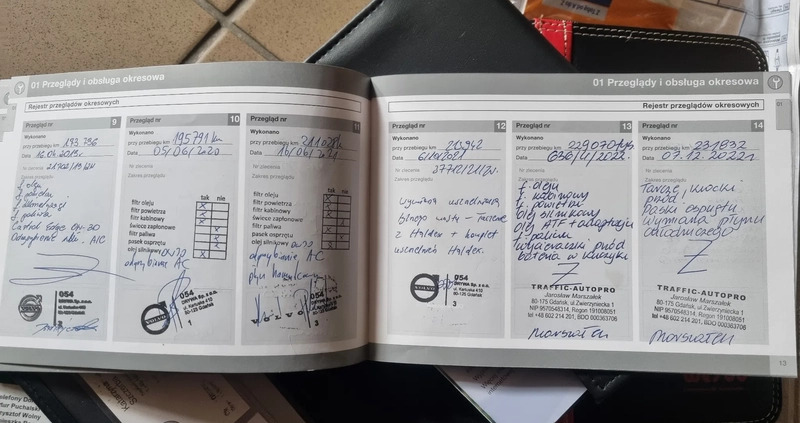 01 Przeglądy i obsługa okresowa
Rejestr przeglądów okresowych
Przegląd nr 9
Wykonano
przy przebiegu km 193 736
Data
Nr zlecenia
Zakres przeglądu
f. oleju
Castrol Edge 0W-30
054
DRYWA Sp. z o.o.
ul. Kartuska 410
80-125 Gdańsk
3
Przegląd nr 10
Wykonano
przy przebiegu km 195791 km
Data 05/06/2020
Nr zlecenia
Zakres przeglądu
tak nie
filtr oleju X
filtr powietrza X
filtr kabinowy X
świece zapłonowe X
filtr paliwa X
pasek osprzętu X
olej silnikowy 0W30 X
odgrzybianie AC
VOLVO
054
DRYWA Sp. z o.o.
ul. Kartuska 410
80-125 Gdańsk
1
Przegląd nr 11
Wykonano
przy przebiegu km
Data 16/06/2021
Nr zlecenia
Zakres przeglądu
tak nie
filtr oleju X
filtr powietrza X
filtr kabinowy X
świece zapłonowe X
filtr paliwa X
pasek osprzętu X
olej silnikowy 0W30 X
odgrzybianie A-C
płyn hamulcowy
054
DRYWA Sp. z o.o.
ul. Kartuska 410
80-125 Gdańsk
VOLVO 3
01 Przeglądy i obsługa okresowa
01
Rejestr przeglądów okresowych
Przegląd nr 12
Wykonano
przy przebiegu km 213942
Data
Nr zlecenia
Zakres przeglądu
Wymiana uszczelniacza
tylnego mostu
z Haldex + komplet
uszczelnień Haldex.
VOLVO
054
DRYWA Sp. z o.o.
ul. Kartuska 410
80-125 Gdańsk
3
Przegląd nr 13
Wykonano
przy przebiegu km 229070
Data
Nr zlecenia
Zakres przeglądu
f. oleju
f. kabinowy
f. powietrza
olej silnikowy
olej ATF + adaptacja
f. paliwa
wycieraczki przód
bateria w kluczyku
Z
TRAFFIC-AUTOPRO
Jarosław Marszałek
80-175 Gdańsk, ul. Zwierzyniecka 1
NIP 9570548314, Regon 191008051
tel +48 602 214 201, BDO 000363706
Marszałek
Przegląd nr 14
Wykonano
przy przebiegu km 231832
Data 07.12.2022r
Nr zlecenia
Zakres przeglądu
Tarcze, klocki
przód
Paski osprzętu
wymiana płynu
chłodniczego
Z
TRAFFIC-AUTOPRO
Jarosław Marszałek
80-175 Gdańsk, ul. Zwierzyniecka 1
NIP 9570548314, Regon 191008051
tel +48 602 214 201, BDO 000363706
Marszałek
13